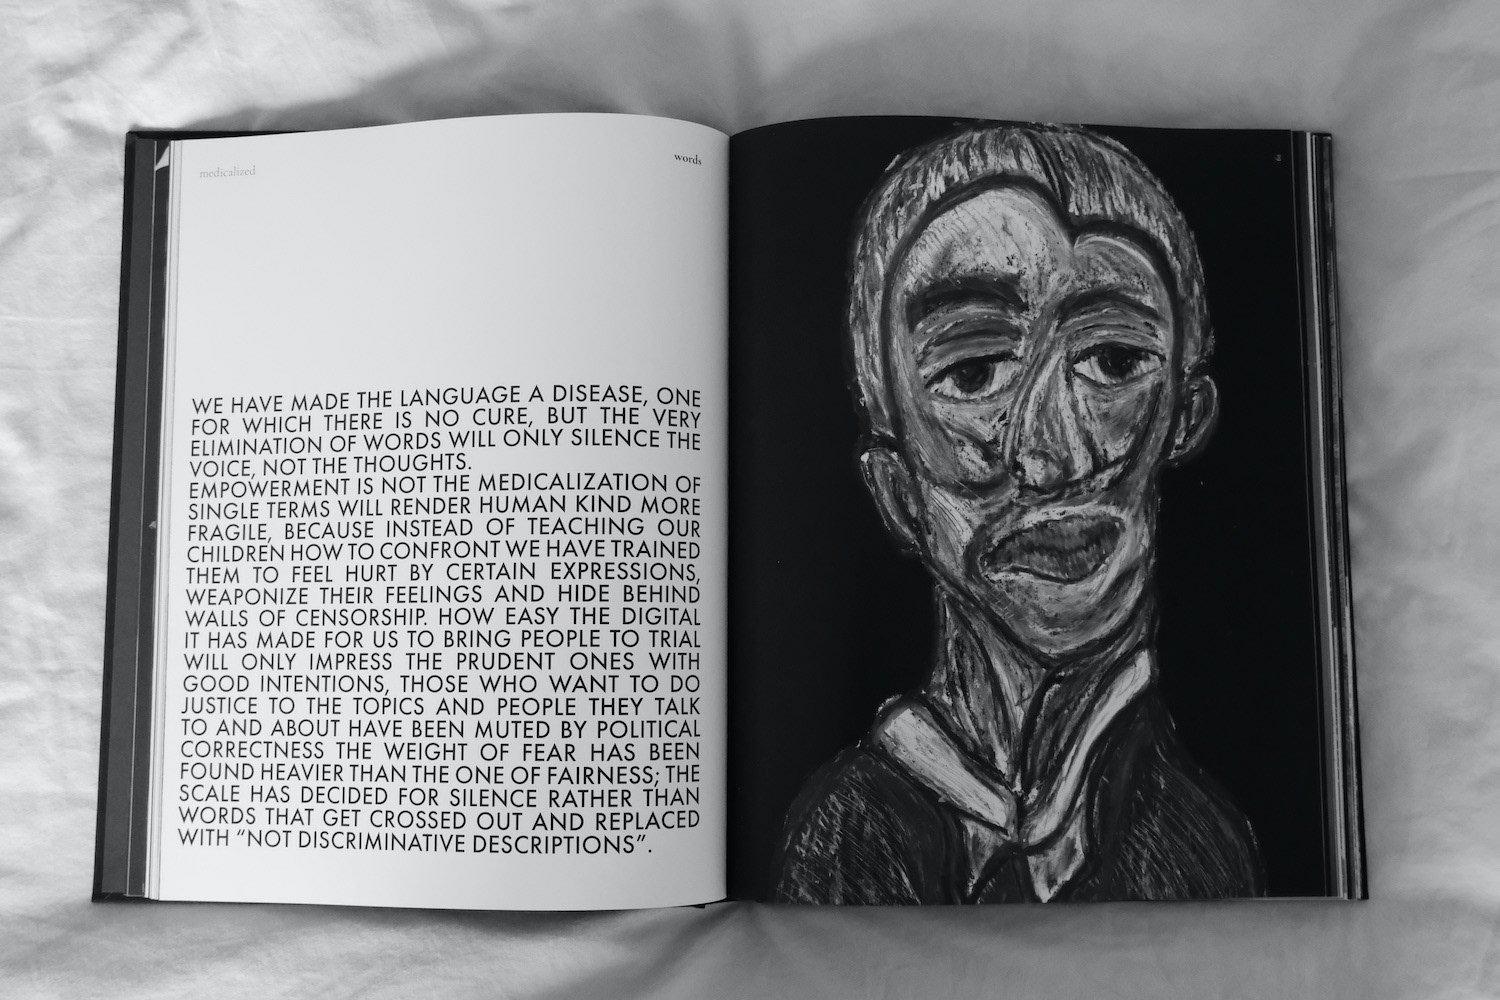 medicalized
words
WE HAVE MADE THE LANGUAGE A DISEASE, ONE
FOR WHICH THERE IS NO CURE, BUT THE VERY
ELIMINATION OF WORDS WILL ONLY SILENCE THE
VOICE, NOT THE THOUGHTS.
EMPOWERMENT IS NOT THE MEDICALIZATION OF
SINGLE TERMS WILL RENDER HUMAN KIND MORE
FRAGILE, BECAUSE INSTEAD OF TEACHING OUR
CHILDREN HOW TO CONFRONT WE HAVE TRAINED
THEM TO FEEL HURT BY CERTAIN EXPRESSIONS,
WEAPONIZE THEIR FEELINGS AND HIDE BEHIND
WALLS OF CENSORSHIP. HOW EASY THE DIGITAL
IT HAS MADE FOR US TO BRING PEOPLE TO TRIAL
WILL ONLY IMPRESS THE PRUDENT ONES WITH
GOOD INTENTIONS, THOSE WHO WANT TO DO
JUSTICE TO THE TOPICS AND PEOPLE THEY TALK
TO AND ABOUT HAVE BEEN MUTED BY POLITICAL
CORRECTNESS THE WEIGHT OF FEAR HAS BEEN
FOUND HEAVIER THAN THE ONE OF FAIRNESS; THE
SCALE HAS DECIDED FOR SILENCE RATHER THAN
WORDS THAT GET CROSSED OUT AND REPLACED
WITH “NOT DISCRIMINATIVE DESCRIPTIONS”.